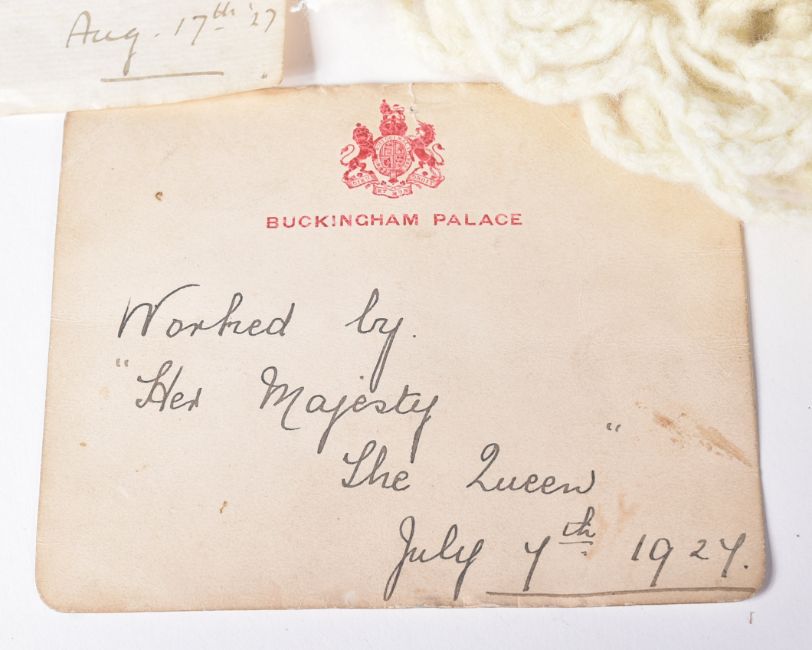 Aug. 17th '27
BUCKINGHAM PALACE
Worked by.
"Her Majesty
The Queen"
July 7th 1927.